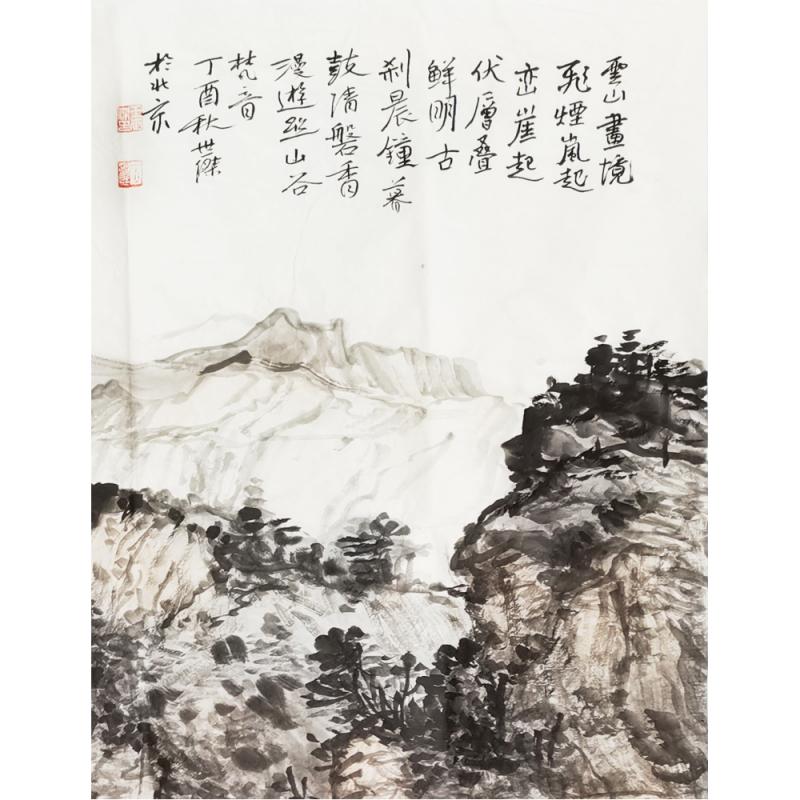 雲山畫境
飛煙嵐起
峦崖起
伏層叠
鮮明古
刹晨鐘暮
鼓清磐香
漫遊山谷
梵音
丁酉秋世傑
於北京